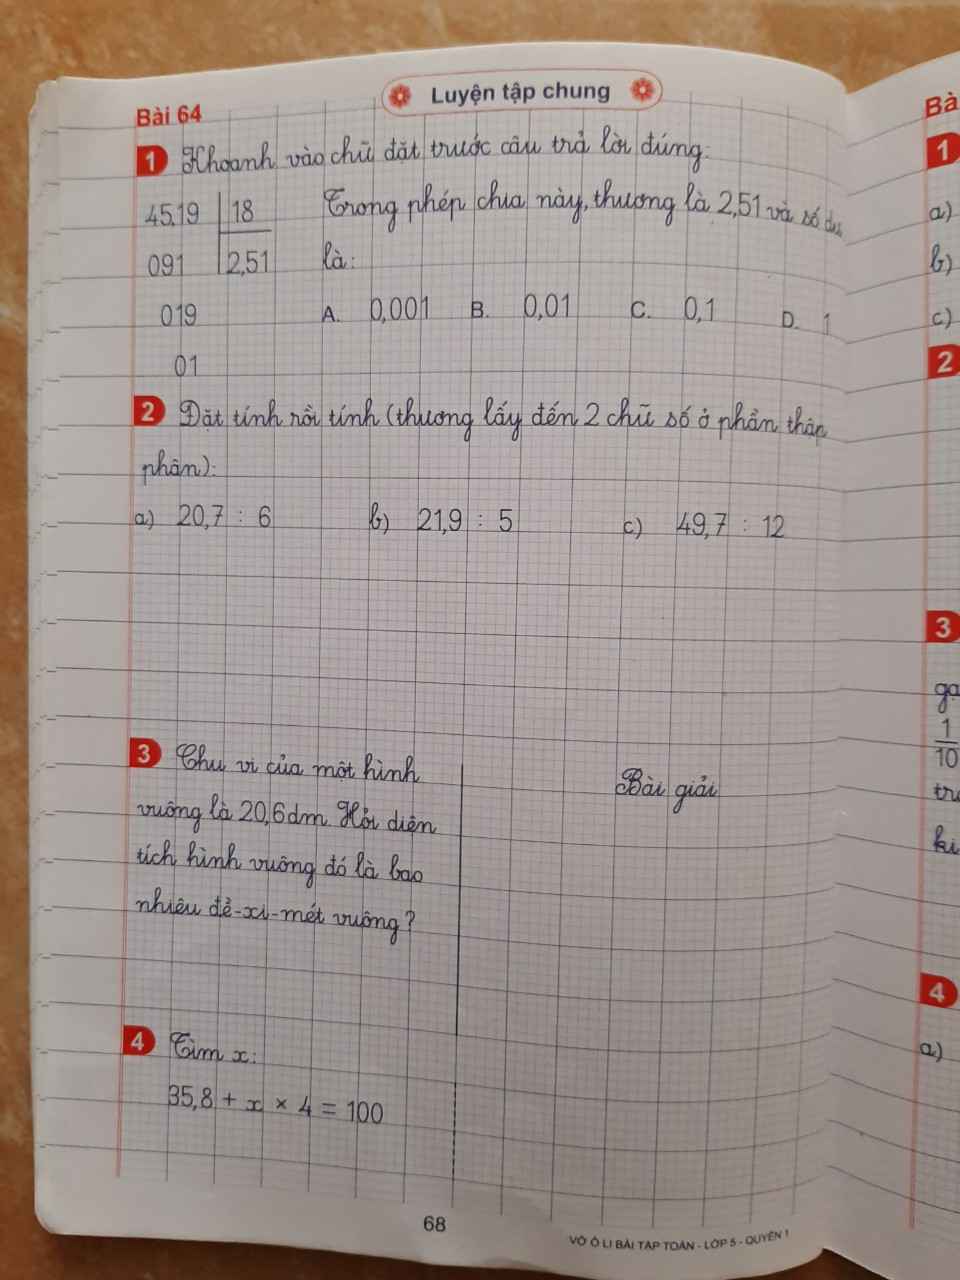 Luyện tập chung
Bài 64
1 Khoanh vào chữ đặt trước câu trả lời đúng:
45,19 18 Trong phép chia này, thương là 2,51 và số dư
091 2,51 là:
019 A. 0,001 B. 0,01 C. 0,1 D. 1
01
2 Đặt tính rồi tính (thương lấy đến 2 chữ số ở phần thập
phân):
a) 20,7 : 6 b) 21,9 : 5 c) 49,7 : 12
3 Chu vi của một hình
vuông là 20,6dm. Hỏi diện
tích hình vuông đó là bao
nhiêu đề-xi-mét vuông?
Bài giải
4 Tìm x:
35,8 + x × 4 = 100
68
VỞ Ô LI BÀI TẬP TOÁN - LỚP 5 - QUYỂN 1
Bà
1
a)
b)
c)
2
3
gạ
1
10
tru
ki
4
a)